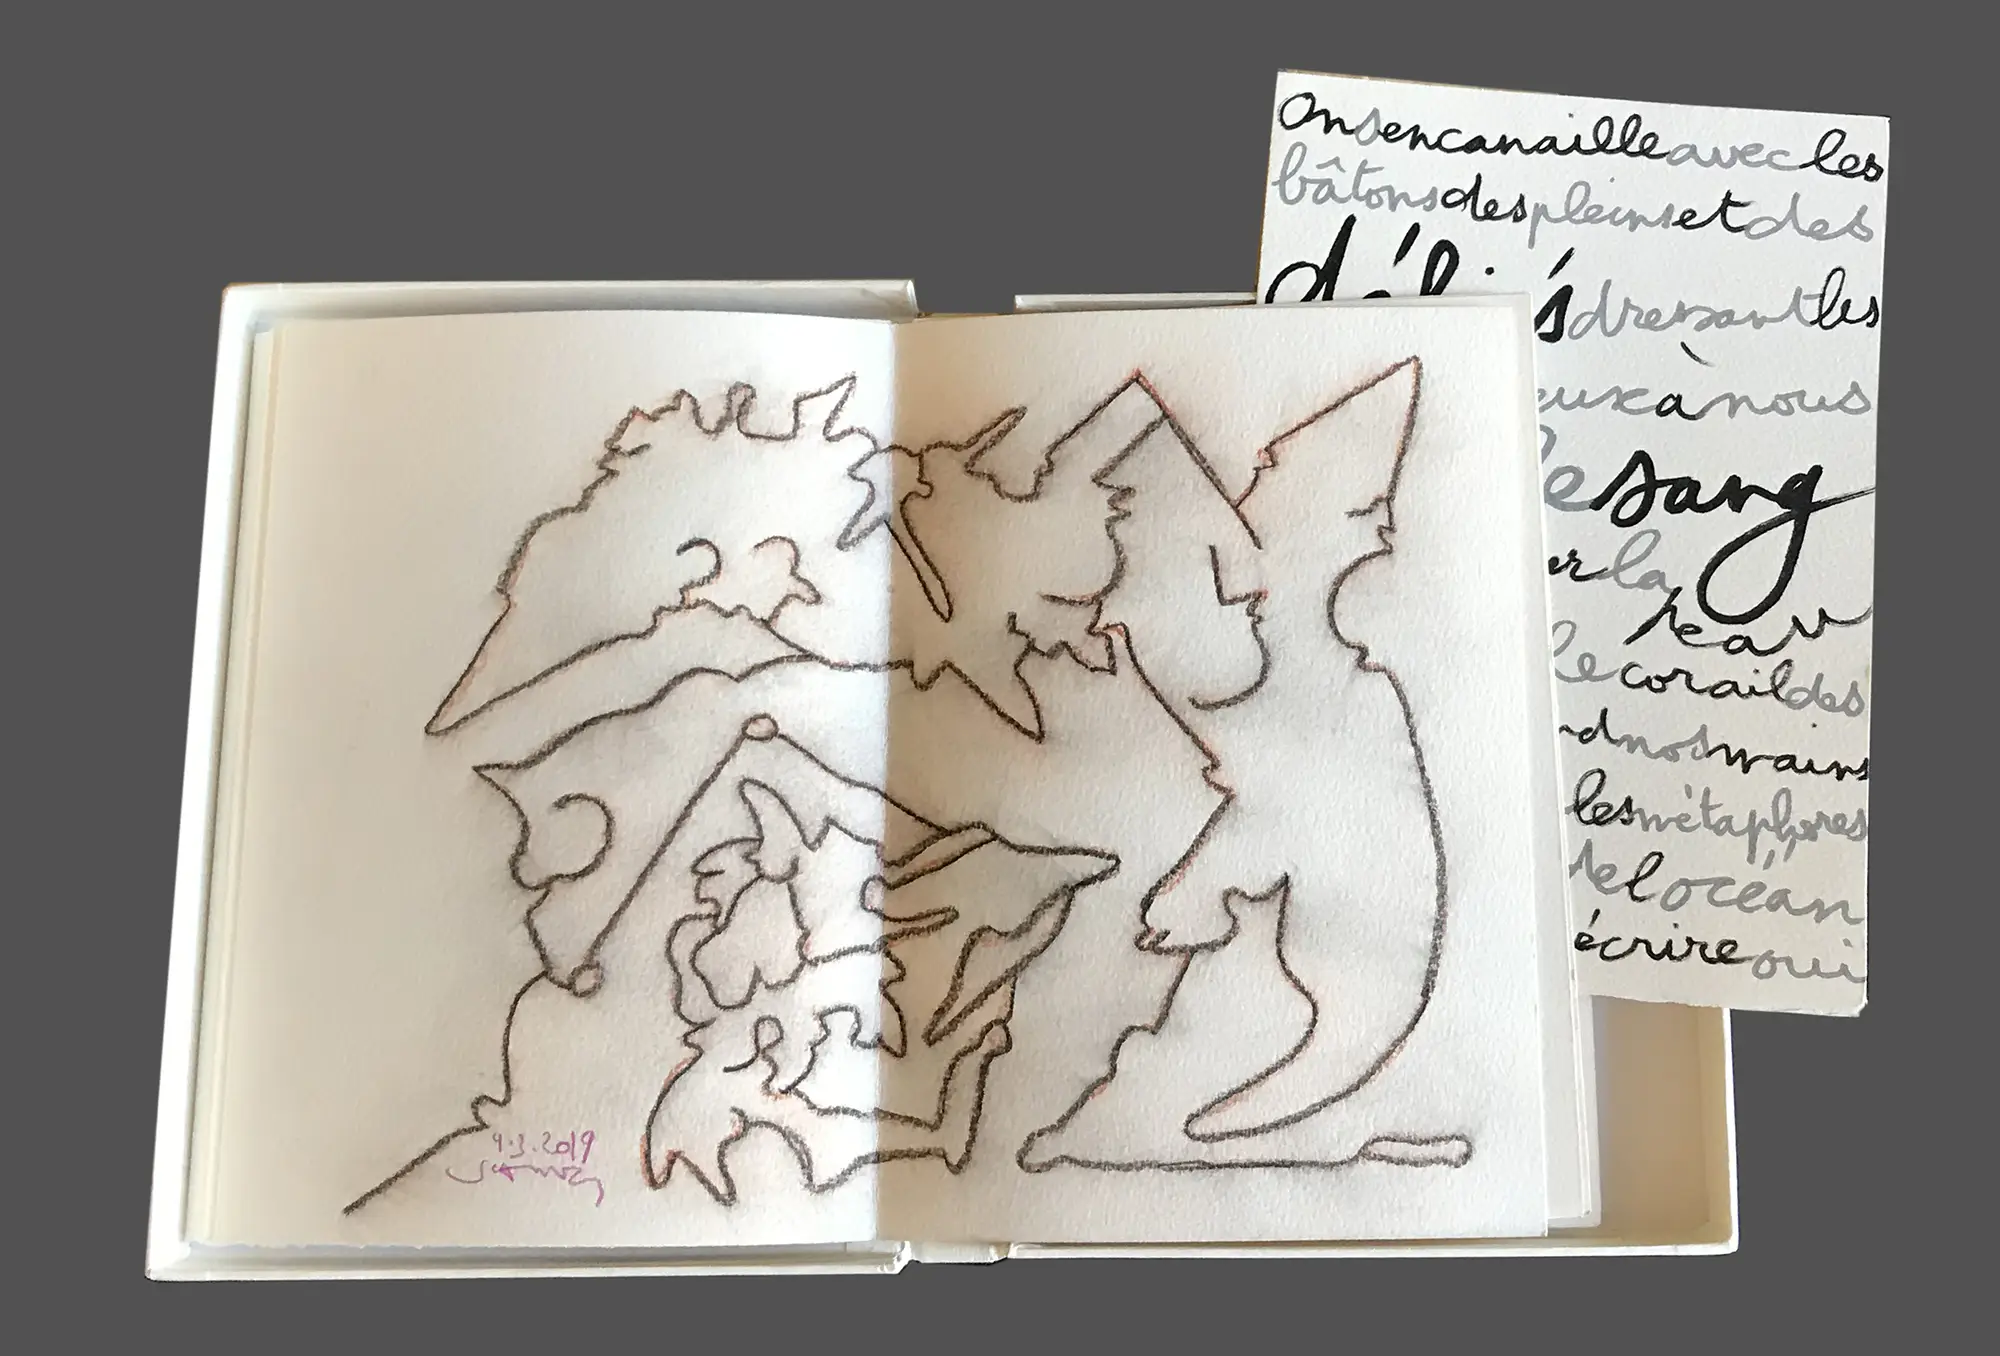 onsencanailleavecles
bâtonsdespleinsetdes
déliésdressantles
euxànous
lesang
erla
peau
lecoraildes
dnosmains
lesmétaphores
del'océan
écrireoui
9.3.2019